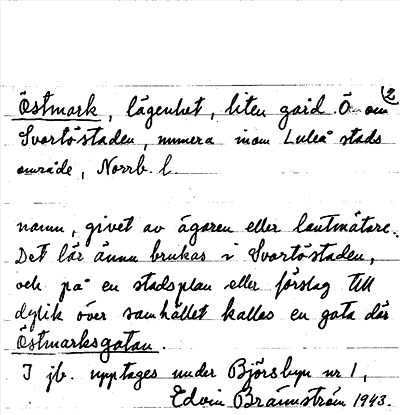 2
Östmark, lägenhet, liten gård. Ö om
Svartöstaden, numera inom Luleå stads
område, Norrb. l.
namn, givet av ägaren eller lantmätare.
Det lär ännu brukas i Svartöstaden,
och på en stadsplan eller förslag till
dylik över samhället kallas en gata där
Östmarksgatan.
I jb. upptages under Björsbyn nr 1,
Edvin Brännström 1943.